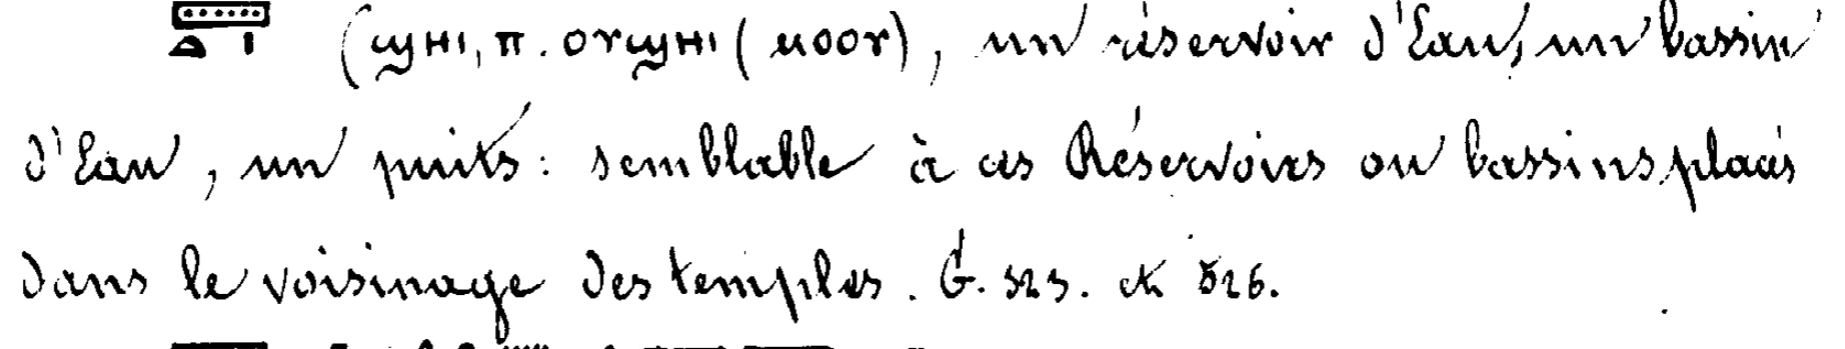 (ϣⲏⲓ, ⲡ. ⲟⲩϣⲏⲓ (ⲙⲟⲟⲩ), un réservoir d'Eau, un bassin
d'Eau, un puits: semblable à ces Réservoirs ou bassins placés
dans le voisinage des temples. G. 525. et 526.